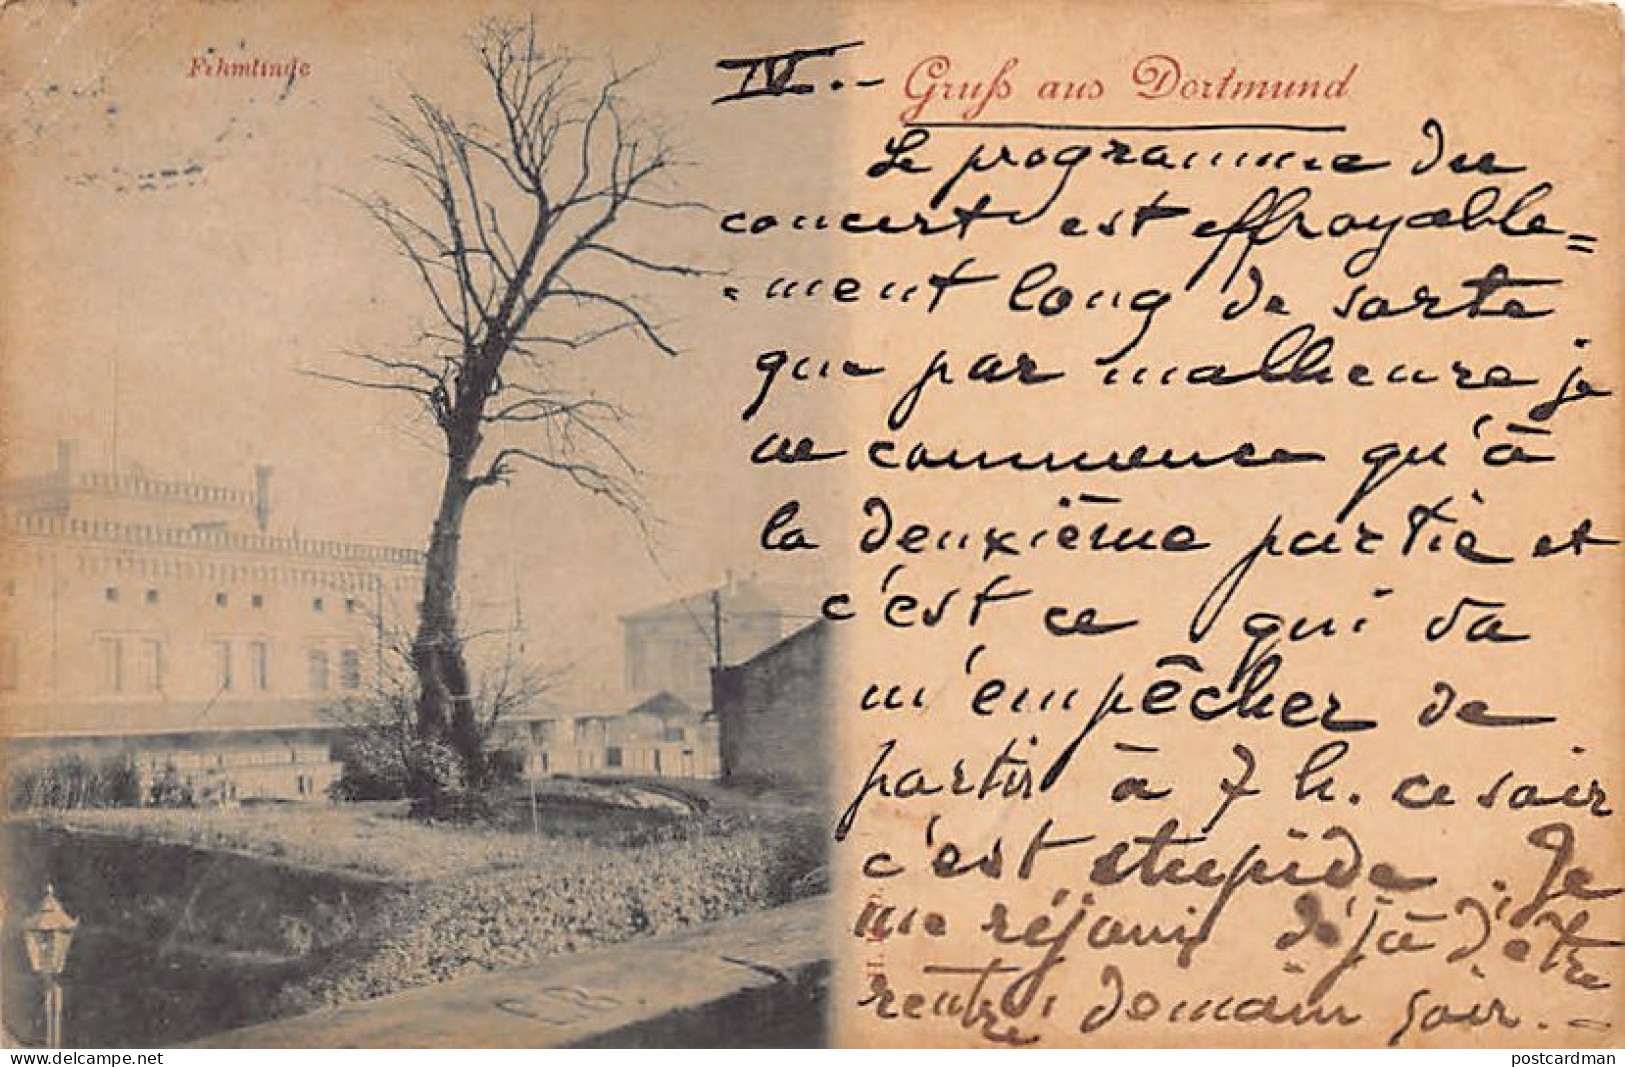 Fehmlinde
IV.-
Gruß aus Dortmund
Le programme du
concert est effroyable=
=ment long de sorte
que par malheure je
ne commence qu'à
la deuxième partie et
c'est ce qui va
m'empêcher de
partir à 7 h. ce soir
c'est stupide. Je
me réjouis déjà d'être
rentré demain soir.-
www.delcampe.net
postcardman